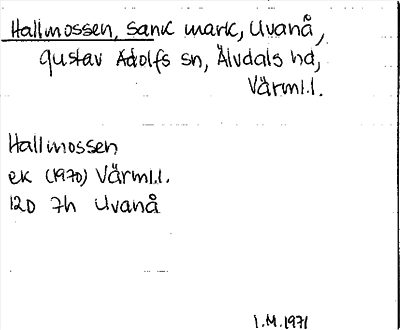 Hallmossen, sank mark, Uvanå,
Gustav Adolfs sn, Älvdals hd,
Värml.l.
Hallmossen
ek (1970) Värml.l.
12D 7h Uvanå
I.M. 1971